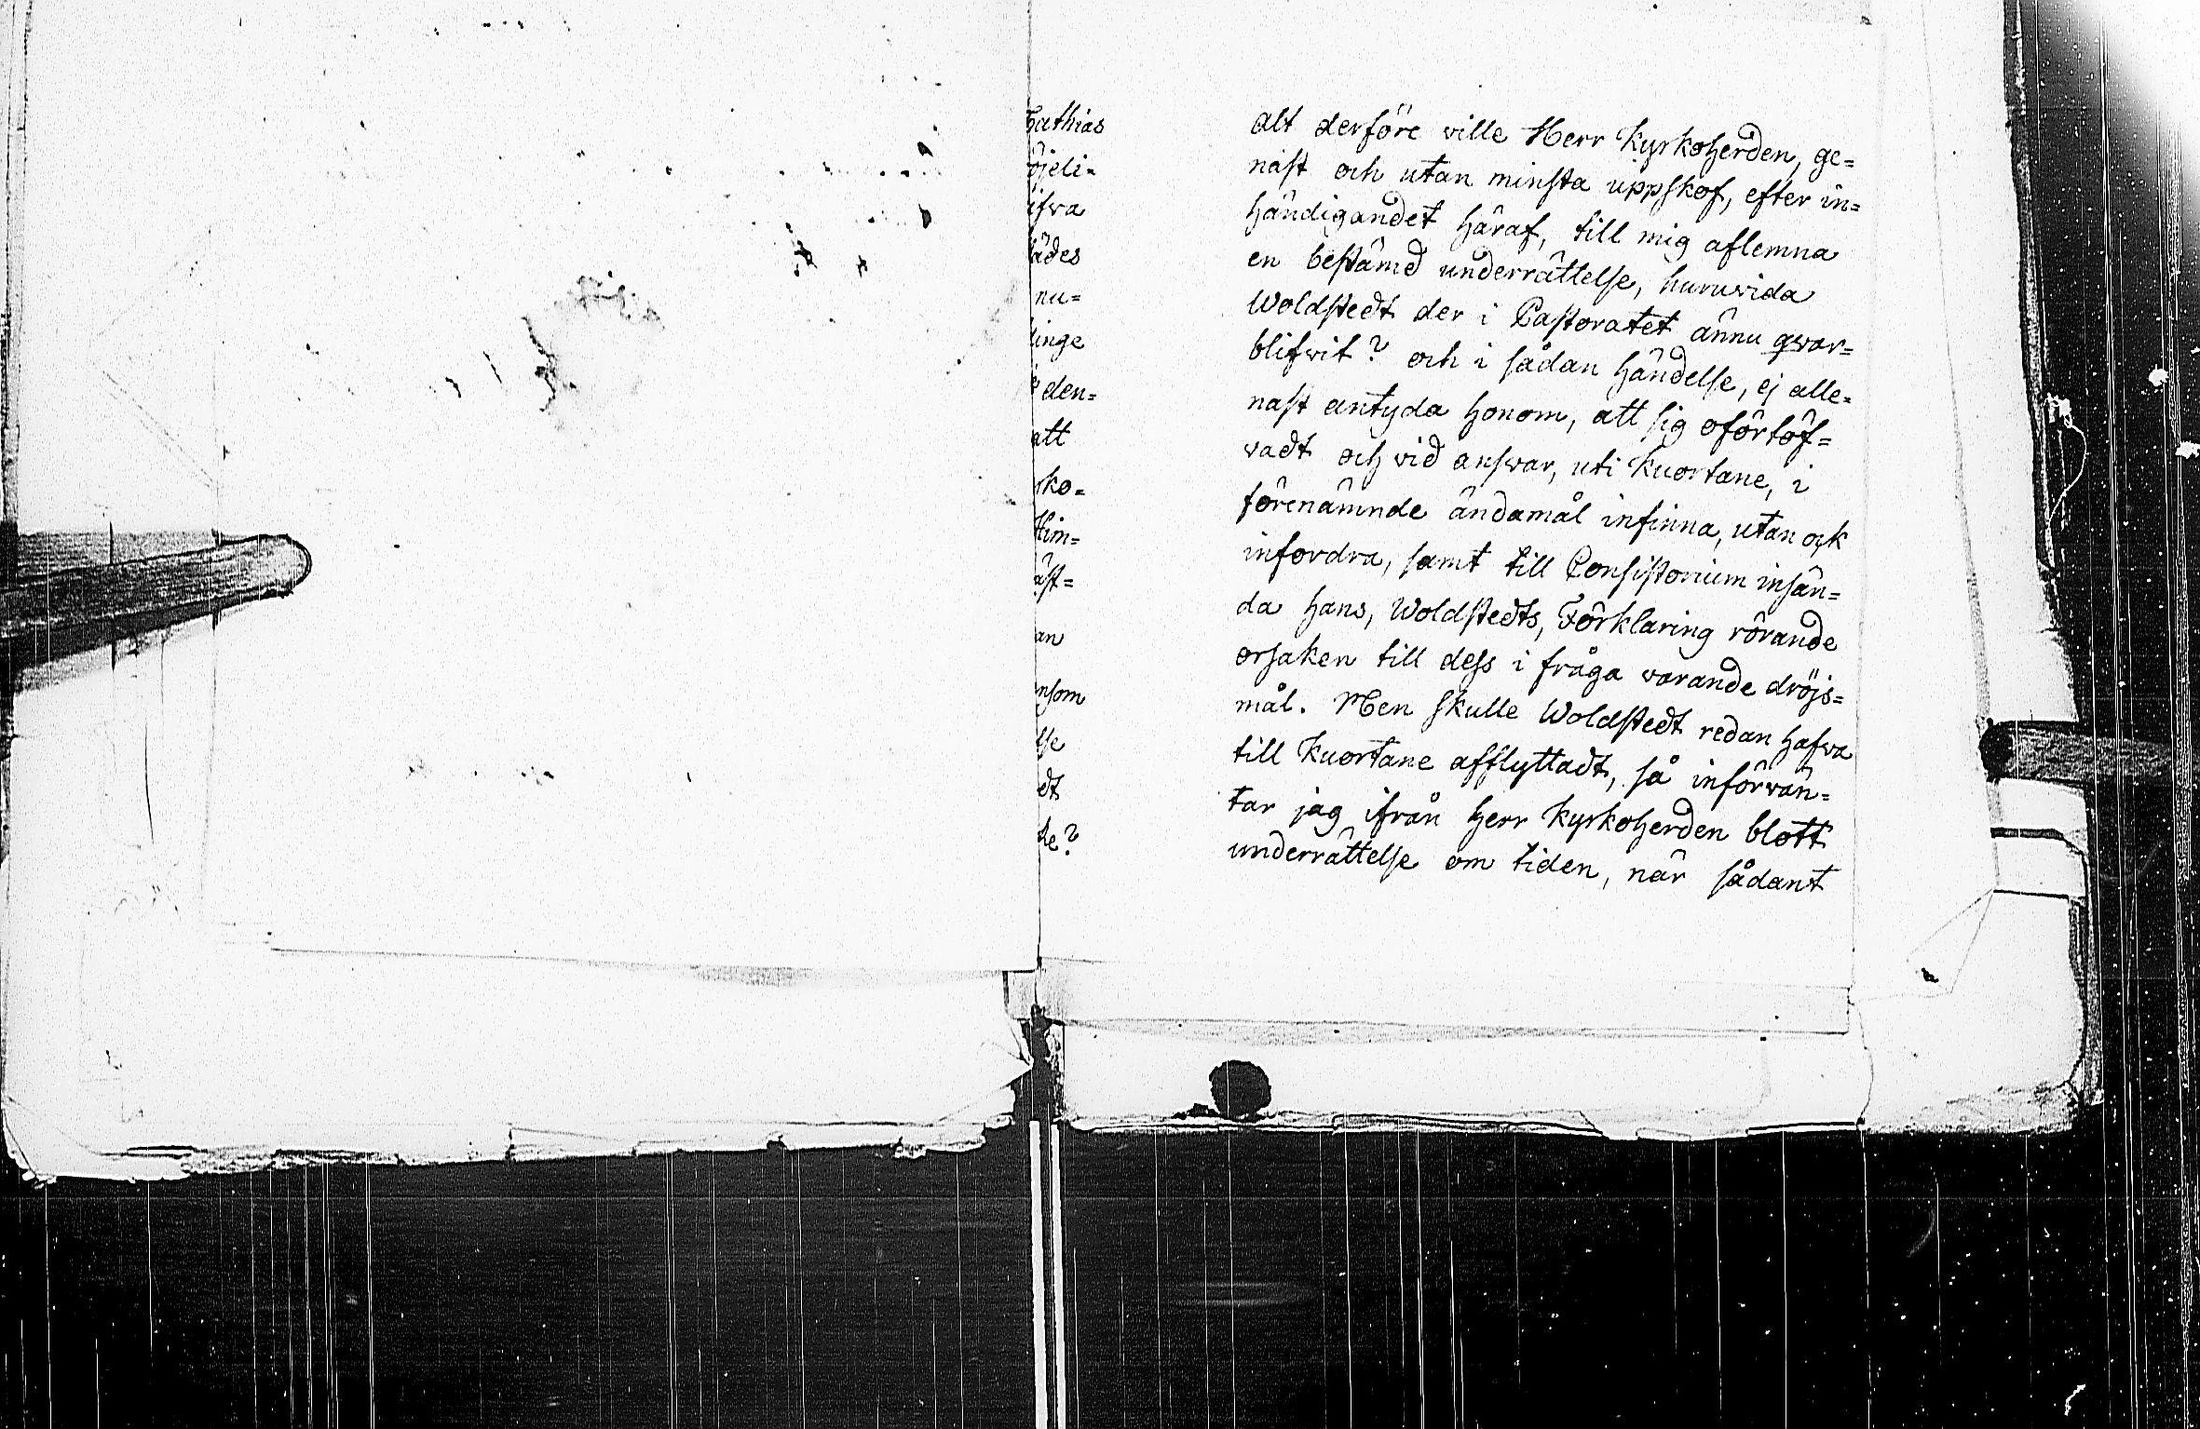 alt derföre ville Herr Kyrkoherden, ge=
näst och utan minsta uppskof, efter in=
händigandet häraf, till mig aflemna
en bestämd underrättelse, huruvida
Woldstedt der i Pastoratet ännu qwar=
blifwit? och i sådan händelse, ej alle=
nast antyda honom, att sig oförtöf=
vadt och vid answar, uti Kuortane, i
förenämnde ändamål infinna, utan ock
infordra, samt till Consistorium insän=
da hans, Woldstedts, Förklaring rörande
orsaken till dess i fråga varande dröjs=
mål. Men skulle Woldstedt redan hafva
till Kuortane afflyttadt, så införvän=
tar jag ifrån Herr Kyrkoherden blott
underrättelse om tiden, när sådant